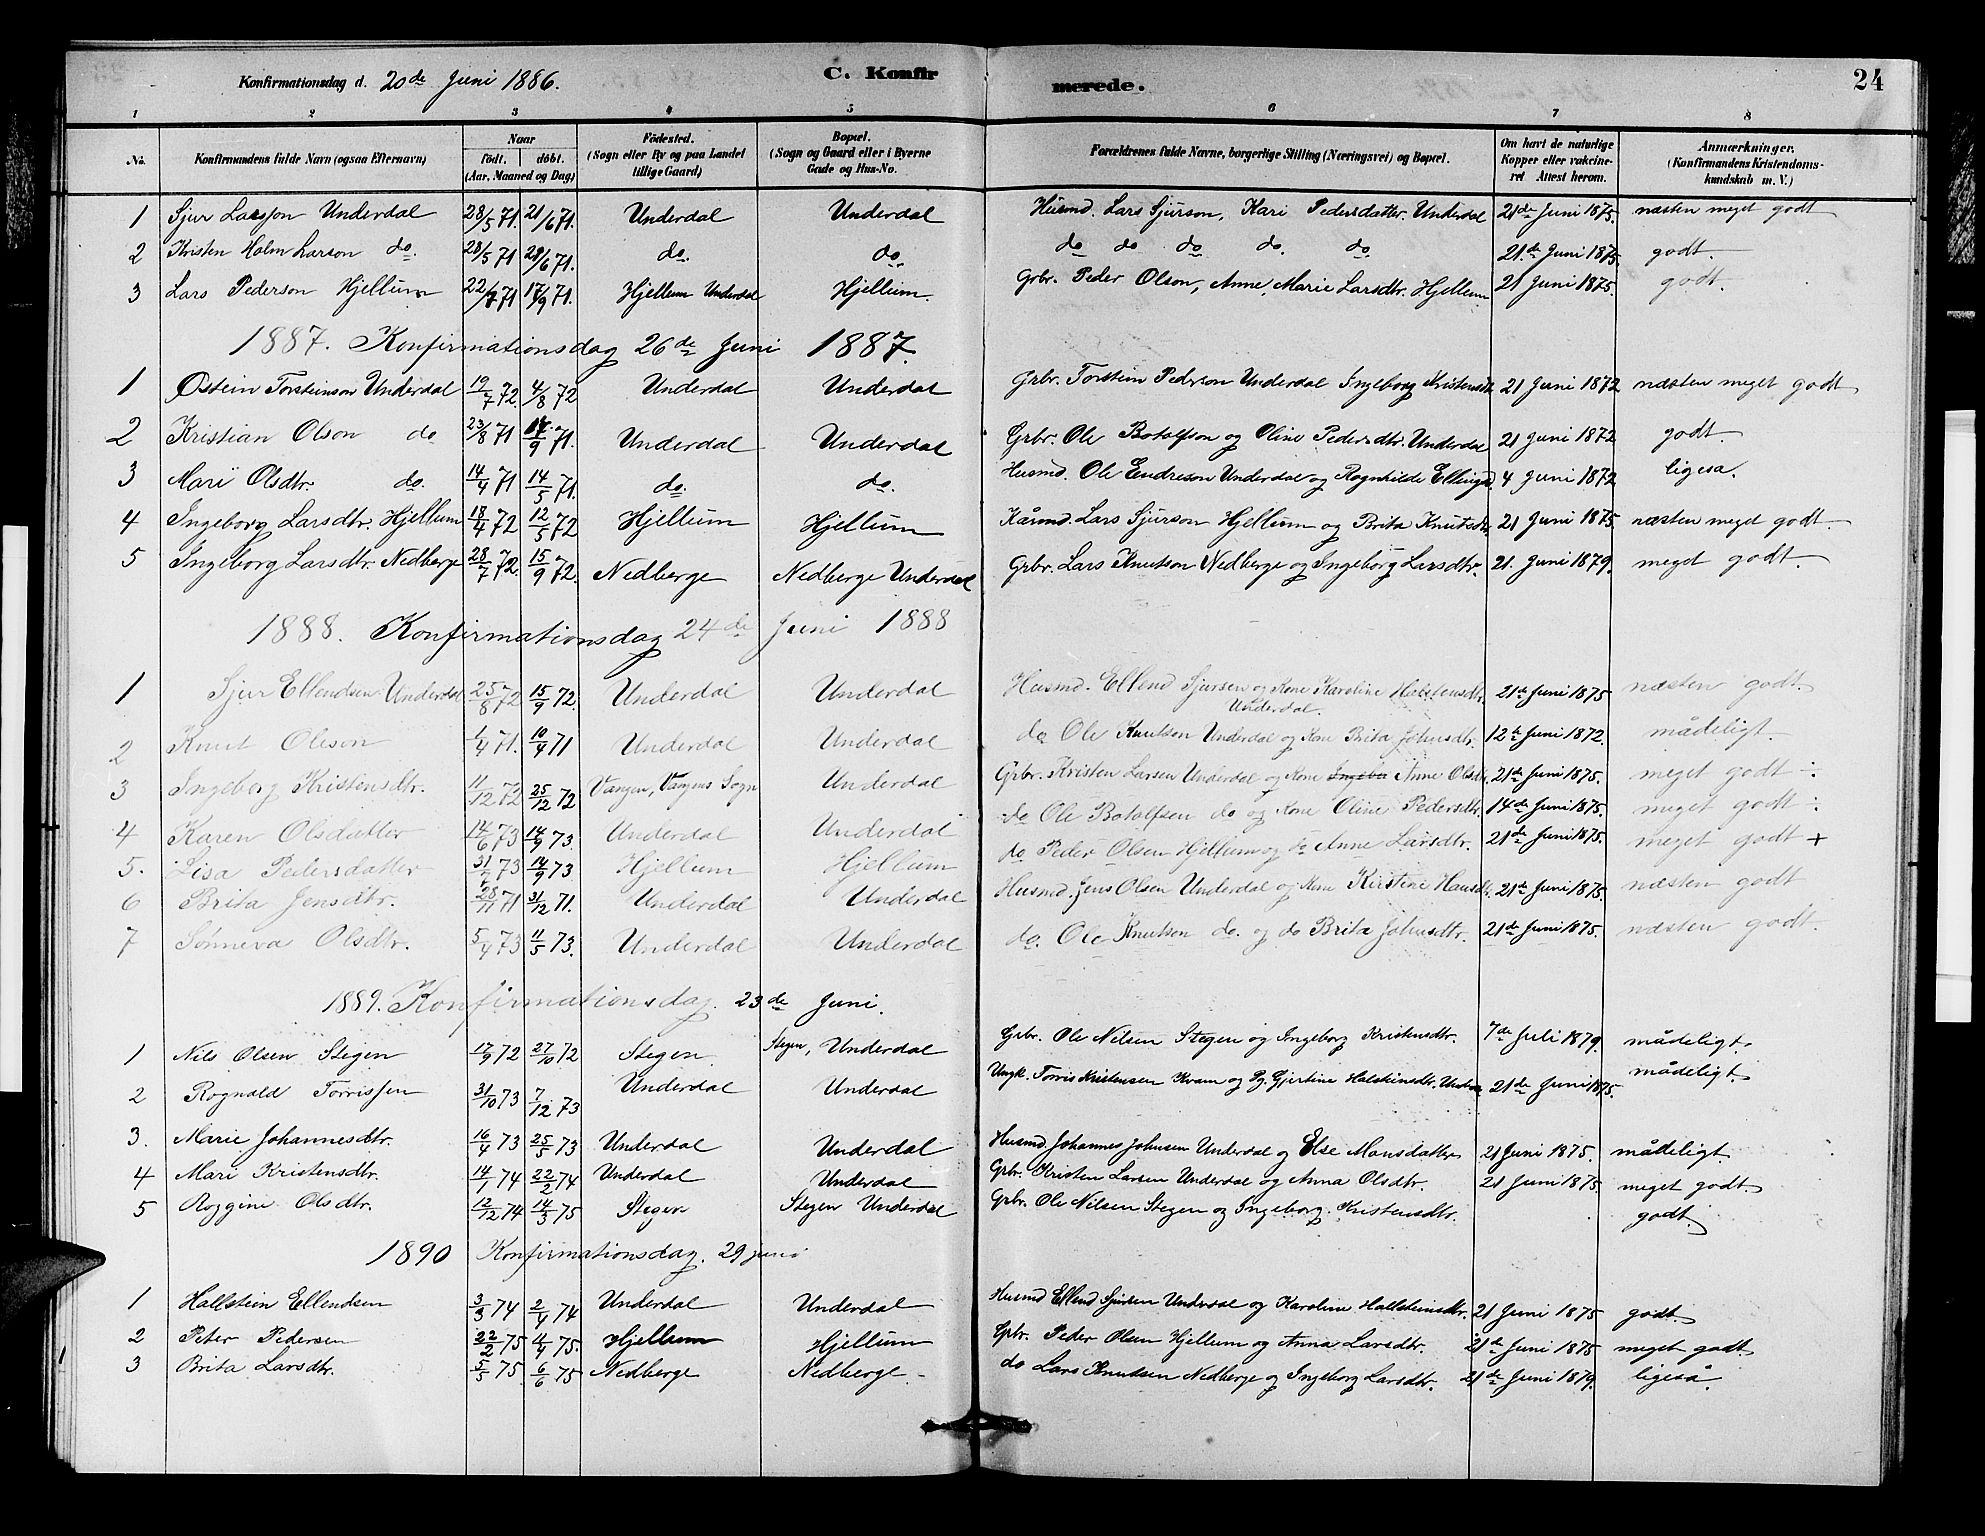 Konfirmationsdag d. 20de Juni 1886. C. Konfirmerede. 24
1 2 3 4 5 6 7 8
No. Konfirmandens fulde Navn (ogsaa Efternavn) Naar födt. döbt. (Aar, Maaned og Dag) Födested. (Sogn eller By og paa Landet tillige Gaard) Bopæl. (Sogn og Gaard eller i Byerne Gade og Hus-No. Forældrenes fulde Navne, borgerlige Stilling (Næringsvei) og Bopæl. Om havt de naturlige Kopper eller vakcineret Attest herom. Anmærkninger. (Konfirmandens Kristendomskundskab m. V.)
1 Sjur Larsson Underdal 28/5 71. 21/6 71. Underdal Underdal Husmd. Lars Sjurson, Kari Pedersdatter. Underdal 21de Juni 1875. næsten meget godt
2 Kristen Holm Larson do. 28/5 71 28/6 71. do. do. do do do do. do. 21.de Juni 1875. godt.
3 Lars Pederson Hjellum 22/7 71 17/9 71. Hjellum Underdal Hjellum. Grbr. Peder Olson, Anne Marie Larsdtr. Hjellum 21 Juni 1875. godt.
1887. Konfirmationsdag 26de Juni 1887.
1 Østein Torsteinson Underdal 19/7 72. 4/8 72 Underdal Underdal Grbr. Torstein Pederson Underdal Ingeborg Kristensdt. 21 Juni 1872 næsten meget godt
2 Kristian Olson do 23/8 71 17/9 71. Underdal Underdal Grbr. Ole Botolfson og Oline Pedersdtr. Underdal 21 Juni 1872 godt.
3 Mari Olsdtr. do. 14/4 71 14/5 71. do. do. Husmd. Ole Endreson Underdal og Ragnhilde Ellingsd. 4 Juni 1872 ligesa.
4 Ingeborg Larsdtr. Hjellum 18/4 72 12/5 72 Hjellum Hjellum Kårmd. Lars Sjurson Hjellum og Brita Knutsdtr. 21 Juni 1875. næsten meget godt
5 Ingeborg Larsdtr. Nedberge 28/7 72. 15/9 72. Nedberge Nedberge Underdal Grbr. Lars Knutson Nedberge og Ingeborg Larsdtr. 21. Juni 1879. meget godt.
1888. Konfirmationsdag 24de Juni 1888
1 Sjur Ellendsen Underdal 25/8 72 15/9 72. Underdal Underdal Husmd. Ellend Sjursen og Kone Karoline Halstensdtr. Underdal. 21de Juni 1875 næsten godt.
2 Knut Oleson 1/4 71. 10/4 71 Underdal Underdal do Ole Knutsen Underdal og Kone Brita Johnsdtr. 12te Juni 1872. mådeligt.
3 Ingeborg Kristensdtr. 11/12 72 25/12 72 Vangen, Vangens Sogn Underdal Grbr. Kristen Larsen Underdal og Kone Anne Olsdtr. 21de Juni 1875. meget godt ÷
4 Karen Olsdatter 14/6 73 14/9 73. Underdal Underdal do Ole Botolfsen do og Kone Oline Pedersdtr. 14de Juni 1875. meget godt ÷
5. Lisa Pedersdatter 31/7 73 14/9 73 Hjellum Hjellum do Peder Olsen Hjellum og do Anne Larsdtr. 21de Juni 1875. meget godt +
6 Brita Jensdtr. 28/11 71 31/12 71. Underdal Underdal Husmd. Jens Olsen Underdal og Kone Kirstine Hansdtr. 21de Juni 1875. næsten godt
7 Sønneva Olsdtr. 5/4 73 11/5 73. Underdal Underdal do. Ole Knutsen do. og do Brita Johnsdtr. 21de Juni 1875. næsten godt.
1889. Konfirmationsdag. 23de Juni.
1 Nils Olsen Stegen 17/9 72 27/10 72 Stegen Stegen, Underdal Grbr. Ole Nilsen Stegen og Ingeborg Kristensdtr. 7de Juli 1879. mådeligt.
2 Rognald Torrissen 31/10 73 7/12 73 Underdal Underdal Ungk. Torris Kristensen Kvam og Pg. Gjertine Halsteinsdtr. 21de Juni 1875. mådeligt.
3. Marie Johannesdtr. 16/4 73 25/5 73 Underdal Underdal Husmd. Johannes Johnsen Underdal og Else Monsdatter 21 Juni 1875. mådeligt.
4 Mari Kristensdtr. 14/1 74 22/2 74 Underdal Underdal Grbr. Kristen Larsen Underdal og Anna Olsdtr. 21 Juni 1875. meget godt.
5 Olsdtr. 12/12 74 14/3 75 Stegen Stegen Underdal Grbr. Ole Nilsen Stegen og Ingeborg Kristensdtr. godt.
1890 Konfirmationsdag. 29 juni
1 Hallstein Ellendsen 3/3 74 2/4 74 Underdal Underdal Husmd Ellend Sjursen Underdal og Karoline Hallsteinsdtr. 21 Juni 1875 godt.
2 Peter Pedersen 22/2 75 4/4 75. Hjellum Hjellum Grbr. Peder Olsen Hjellum og Anna Larsdtr. 21de Juni 1875 meget godt.
3 Brita Larsdtr. 5/5 75 6/6 75 Nedberge Nedberge. do Lars Knudsen Nedberge og Ingeborg Larsdtr. 21de Juni 1879. ligeså.